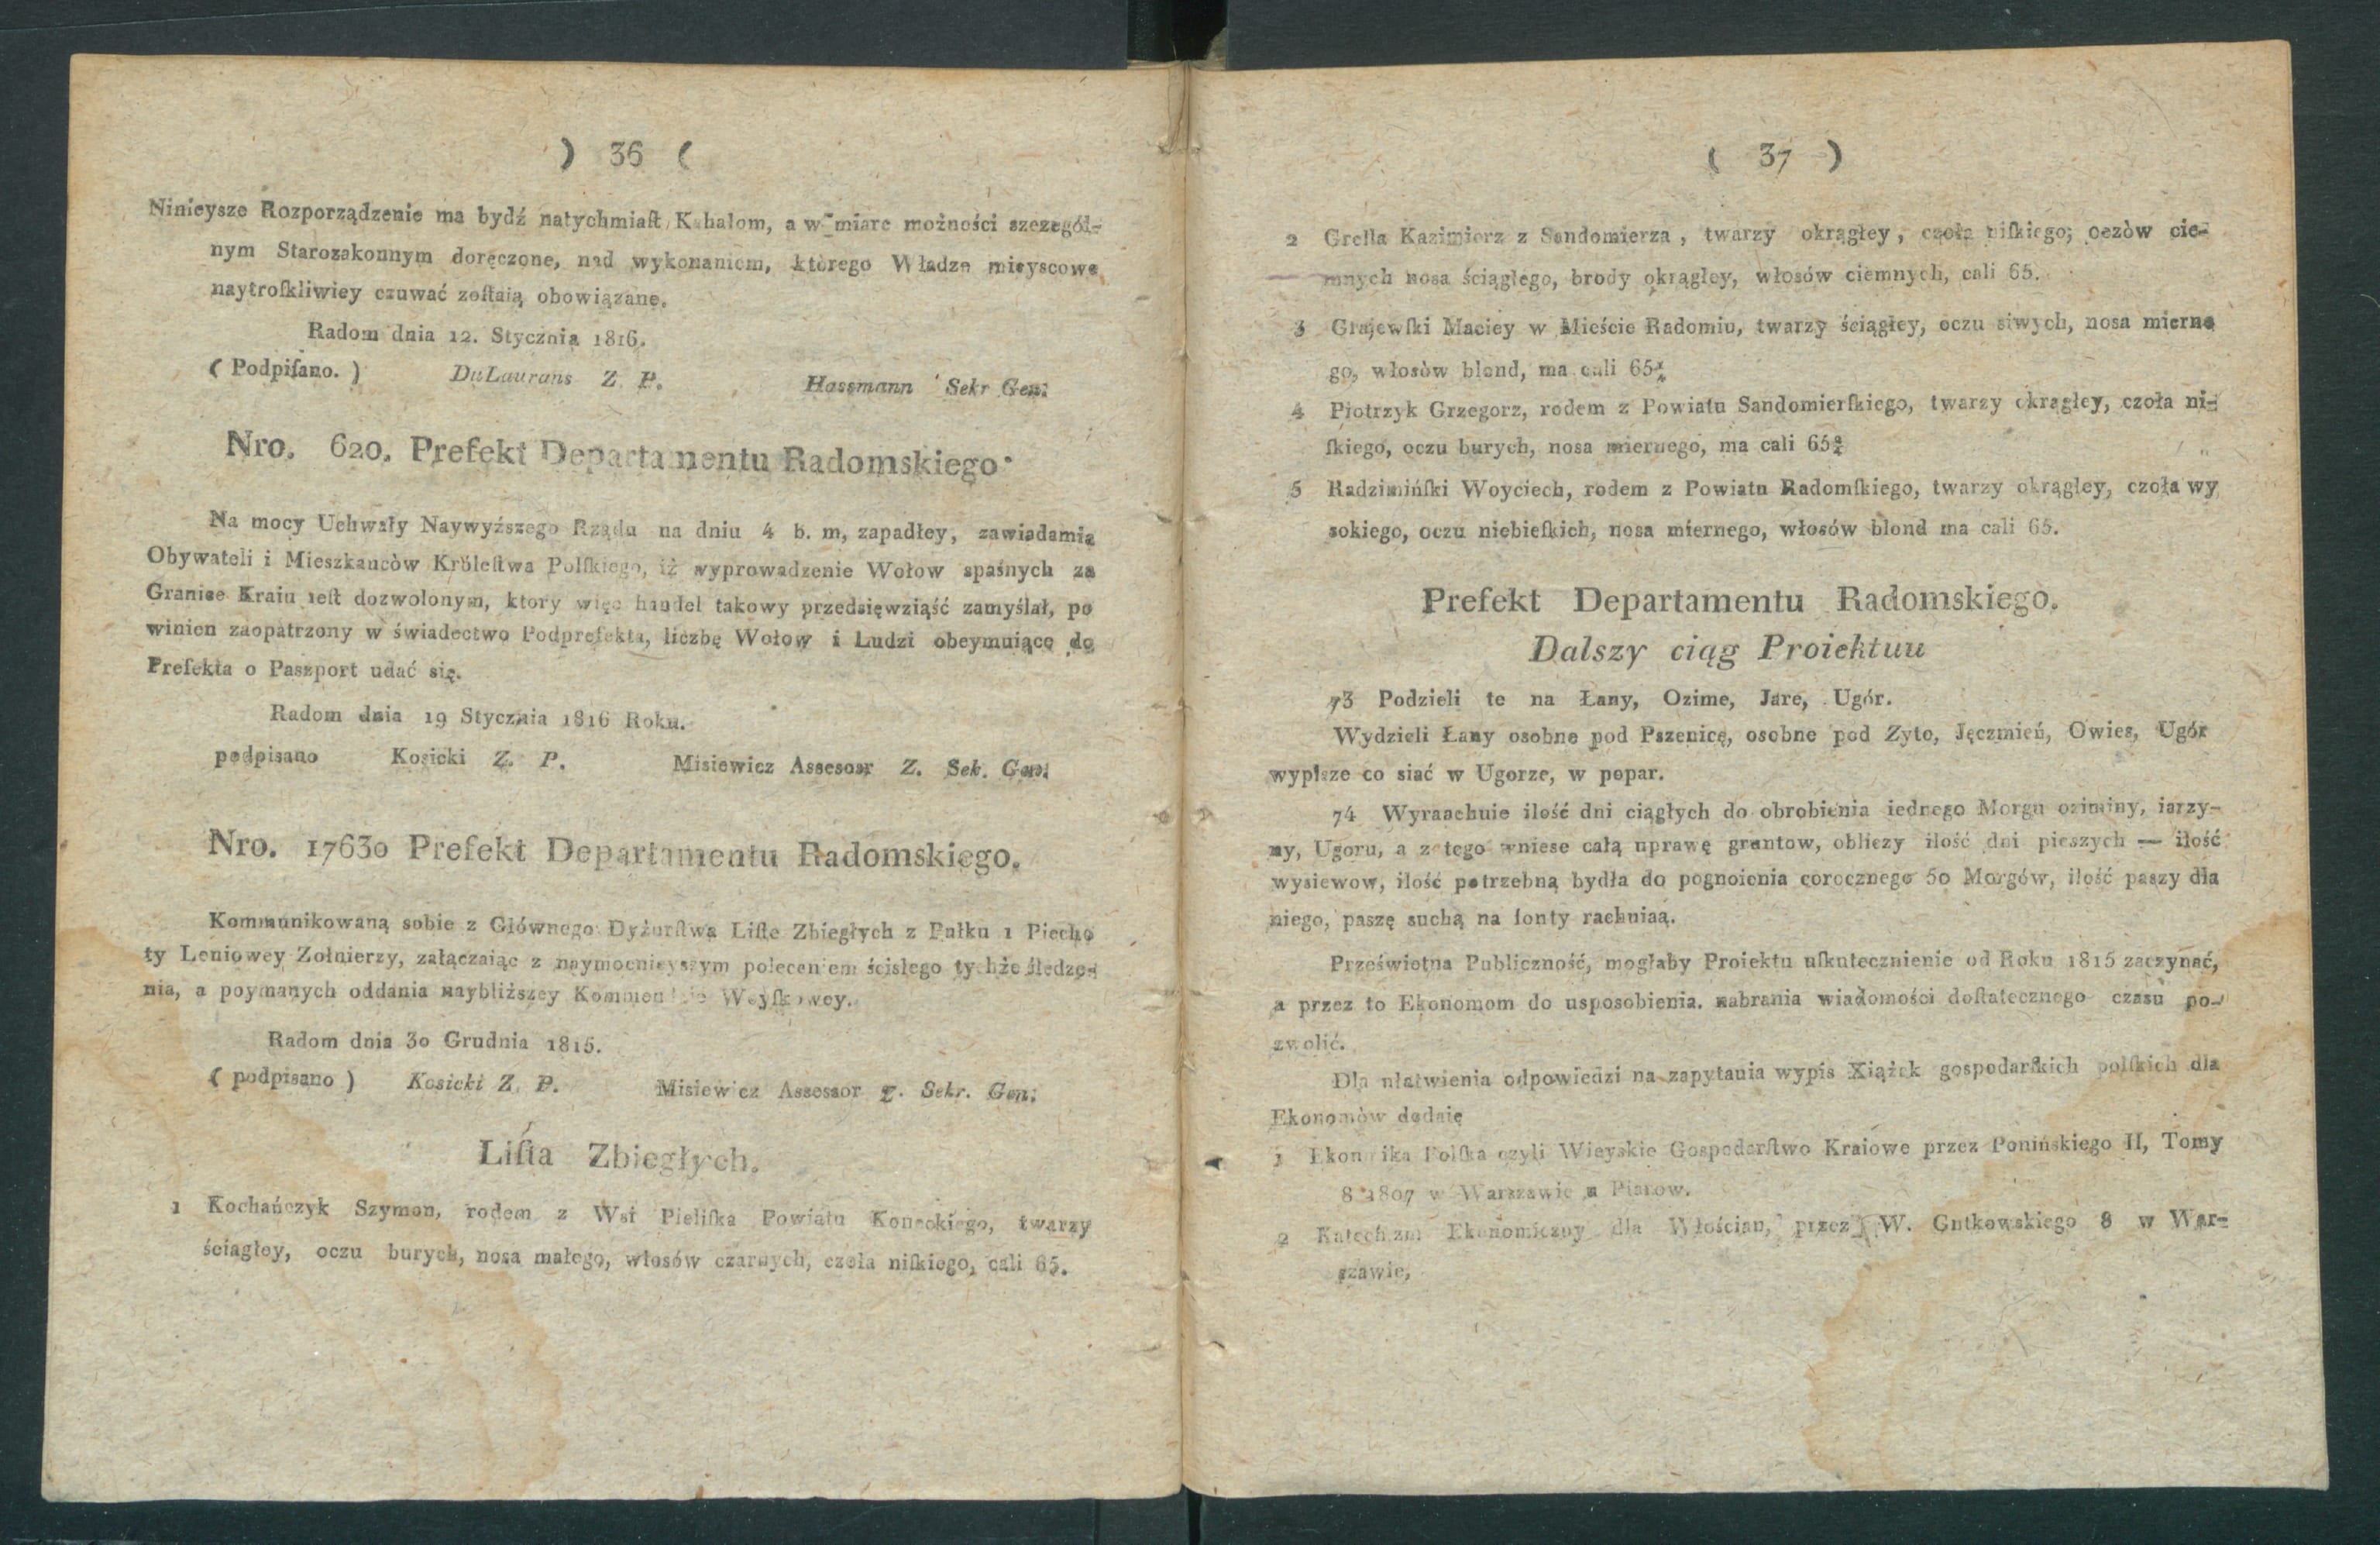 ) 36 (
Ninieysze Rozporządzenie ma bydź natychmiaſt Kahalom, a w miarę możności szczegól-
nym Starozakonnym doręczone, nad wykonaniem, którego Władze mieyscowe
naytroſkliwiey czuwać zoſtaią obowiązane.
Radom dnia 12. Stycznia 1816.
( Podpiſano. ) DuLaurans Z. P. Hassmann Sekr Gen:
Nro. 620. Prefekt Departamentu Radomskiego.
Na mocy Uchwały Naywyższego Rządu na dniu 4 b. m, zapadłey, zawiadamia
Obywateli i Mieszkańców Króleſtwa Polſkiego, iż wyprowadzenie Wołow spaśnych za
Granice Kraiu ieſt dozwolonym, ktory więc handel takowy przedsięwziąść zamyślał, po
winien zaopatrzony w świadectwo Podprefekta, liczbę Wołow i Ludzi obeymuiące do
Prefekta o Paszport udać się.
Radom dnia 19 Stycznia 1816 Roku.
podpisano Kosicki Z. P. Misiewicz Assesosr Z. Sek. Gen:
Nro. 17630 Prefekt Departamentu Radomskiego.
Kommunikowaną sobie z Głównego Dyżurſtwa Liſtę Zbiegłych z Pułku 1 Piecho
ty Leniowey Zołnierzy, załączaiąc z naymocnieyszym poleceniem ścisłego tychże śledze-
nia, a poymanych oddania naybliższey Kommendzie Woyſkowey.
Radom dnia 30 Grudnia 1815.
( podpisano ) Kosicki Z. P. Misiewicz Assessor Z. Sekr. Gen:
Liſta Zbiegłych.
1 Kochańczyk Szymon, rodem z Wsi Pieliſka Powiatu Koneckiego, twarzy
ściągłey, oczu burych, nosa małego, włosów czarnych, czoła niſkiego, cali 65.
( 37 )
2 Grella Kazimierz z Sandomierza, twarzy okrągłey, czoła niſkiego, oczòw cie-
mnych nosa ściągłego, brody okrągłey, włosów ciemnych, cali 65.
3 Grajewſki Maciey w Mieście Radomiu, twarzy ściągłey, oczu siwych, nosa mierne
go, włosòw blond, ma cali 65¼
4 Piotrzyk Grzegorz, rodem z Powiatu Sandomierſkiego, twarzy okrągłey, czoła ni-
ſkiego, oczu burych, nosa miernego, ma cali 65¾
5 Radzimińſki Woyciech, rodem z Powiatu Radomſkiego, twarzy okrągley, czoła wy
sokiego, oczu niebieſkich, nosa miernego, włosów blond ma cali 65.
Prefekt Departamentu Radomskiego.
Dalszy ciąg Proiektuu
73 Podzieli te na Łany, Ozime, Jare, Ugór.
Wydzieli Łany osobne pod Pszenicę, osobne pod Zyto, Jęczmień, Owies, Ugór
wypisze co siać w Ugorze, w popar.
74 Wyraachuie ilość dni ciągłych do obrobienia iednego Morgu oziminy, iarzy-
ny, Ugoru, a z tego wniese całą uprawę gruntow, obliczy ilość dni pieszych — ilość
wysiewow, ilość potrzebną bydła do pognoienia corocznego 50 Morgów, ilość paszy dla
niego, paszę suchą na fonty rachuiaą.
Prześwietna Publiczność, mogłaby Proiektu uſkutecznienie od Roku 1815 zaczynać,
a przez to Ekonomom do usposobienia. nabrania wiadomości doſtatecznego czasu po-
zwolić.
Dla ułatwienia odpowiedzi na zapytania wypis Xiążek gospodarſkich polſkich dla
Ekonomòw dodaię
1 Ekonomika Polſka czyli Wieyskie Gospodarſtwo Kraiowe przez Ponińskiego II, Tomy
8 1807 w Warszawie u Piarow.
2 Katechizm Ekonomiczny dla Włościan, przez W. Gutkowskiego 8 w War-
szawie,